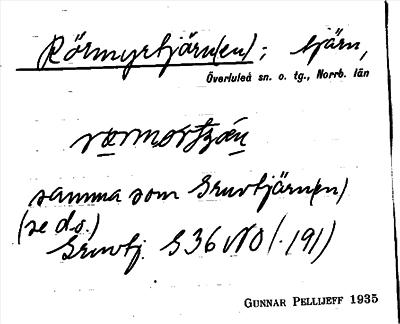 Rörmyrtjärn(en); tjärn,
Överluleå sn. o. tg., Norrb. län
samma som Gruvtjärn(en)
(se d.s.)
Gruvtj. S36 NO (.191)
GUNNAR PELLIJEFF 1935